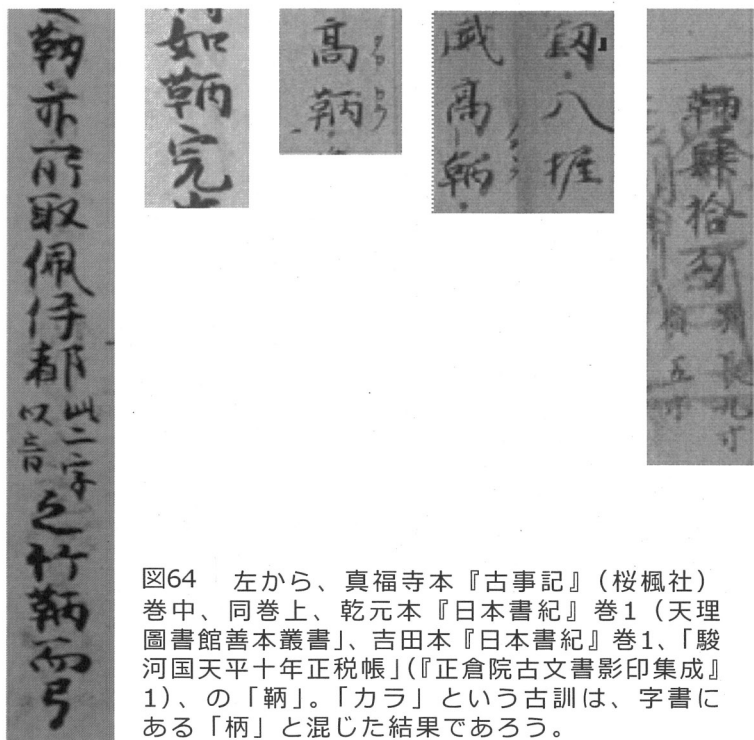 靫亦所取佩伊都
此二字
以音
之竹鞆而弓
如鞆完
高鞆
釼八握
威高鞆
鞆肆拾勾
図64　左から、真福寺本『古事記』（桜楓社）
巻中、同巻上、乾元本『日本書紀』巻1（天理
圖書館善本叢書」、吉田本『日本書紀』巻1、「駿
河国天平十年正税帳」(『正倉院古文書影印集成』
1）、の「鞆」。「カラ」という古訓は、字書に
ある「柄」と混じた結果であろう。